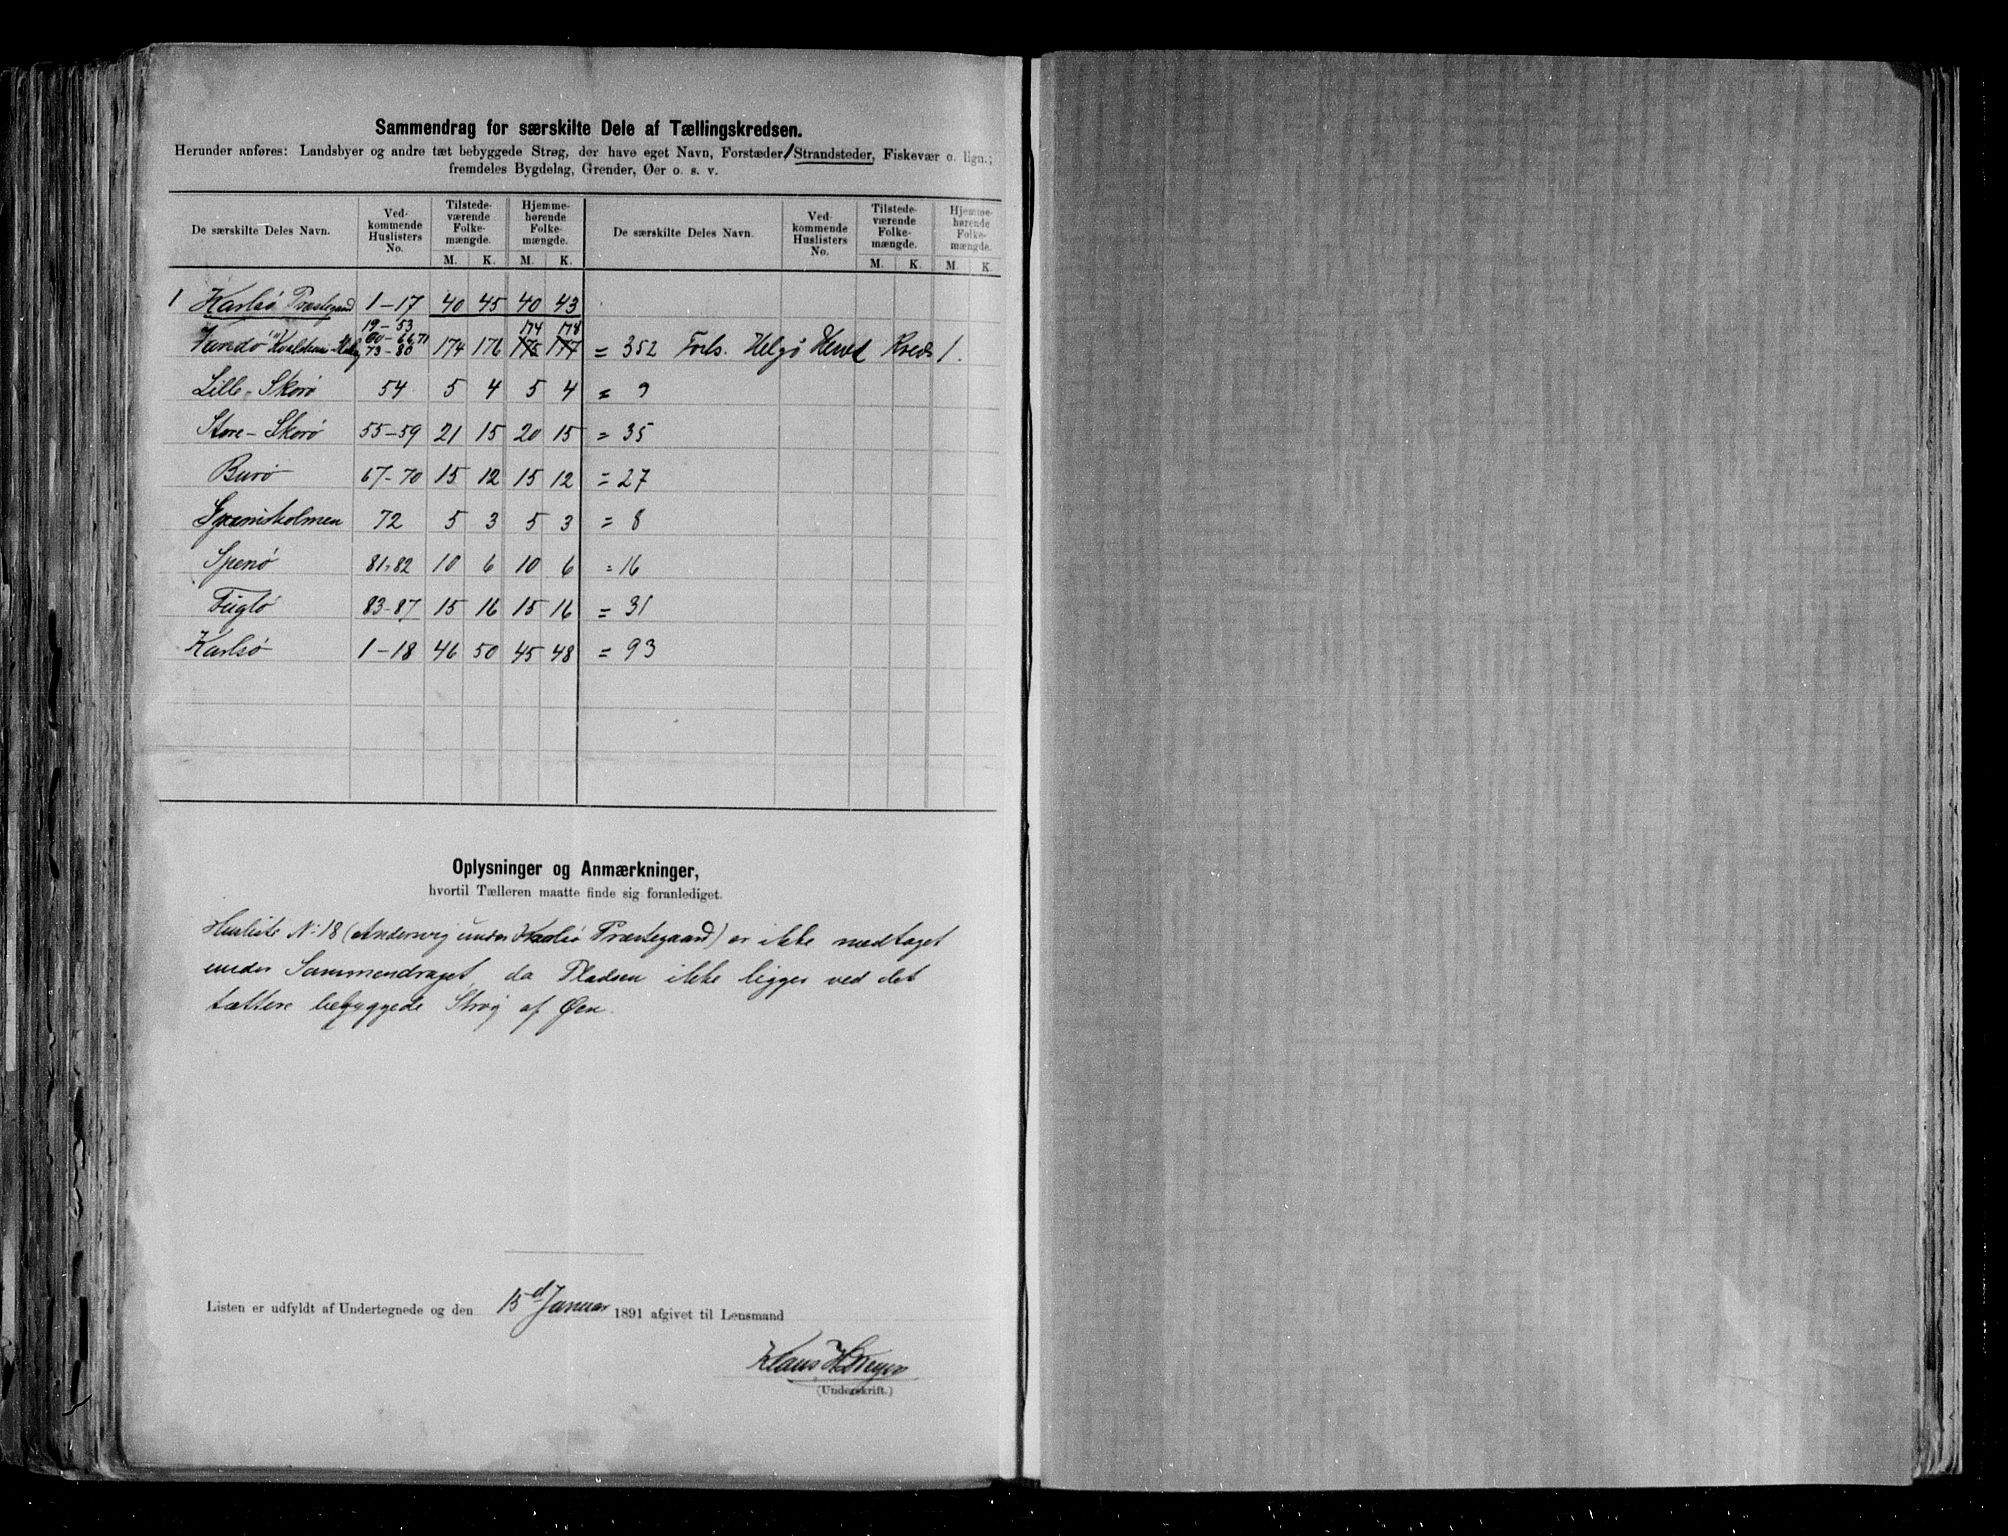 Sammendrag for særskilte Dele af Tællingskredsen.
Herunder anføres: Landsbyer og andre tæt bebyggede Strøg, der have eget Navn, Forstæder/Strandsteder, Fiskevær o. lign.;
fremdeles Bygdelag, Grender, Øer o. s. v.
De særskilte Deles Navn. Ved-kommende Huslisters No. Tilstede-værende Folke-mængde. Hjemme-hørende Folke-mængde. De særskilte Deles Navn. Ved-kommende Huslisters No. Tilstede-værende Folke-mængde. Hjemme-hørende Folke-mængde.
M. K. M. K. M. K. M. K.
1 Karlsø Præstegaard 1-17 40 45 40 43
19-53 174 178
60-66,71
Vandø 73-80 174 176 175 177 = 352 Forts. Helgø Herred Kreds 1.
Lille-Skorø 54 5 4 5 4 = 9
Store-Skorø 55-59 21 15 20 15 = 35
Burø 67-70 15 12 15 12 = 27
Grønisholmen 72 5 3 5 3 = 8
Spenø 81-82 10 6 10 6 = 16
Fuglø 83-87 15 16 15 16 = 31
Karlsø 1-18 46 50 45 48 = 93
Oplysninger og Anmærkninger,
hvortil Tælleren maatte finde sig foranlediget.
Husliste No 18 (Andersvig under Karlsø Præstegaard) er ikke medtaget
under Sammendraget, da Pladsen ikke ligger ved det
tættere bebyggede Strøg af Øen.
Listen er udfyldt af Undertegnede og den 15d Januar 1891 afgivet til Lensmand
Klaus
(Underskrift.)